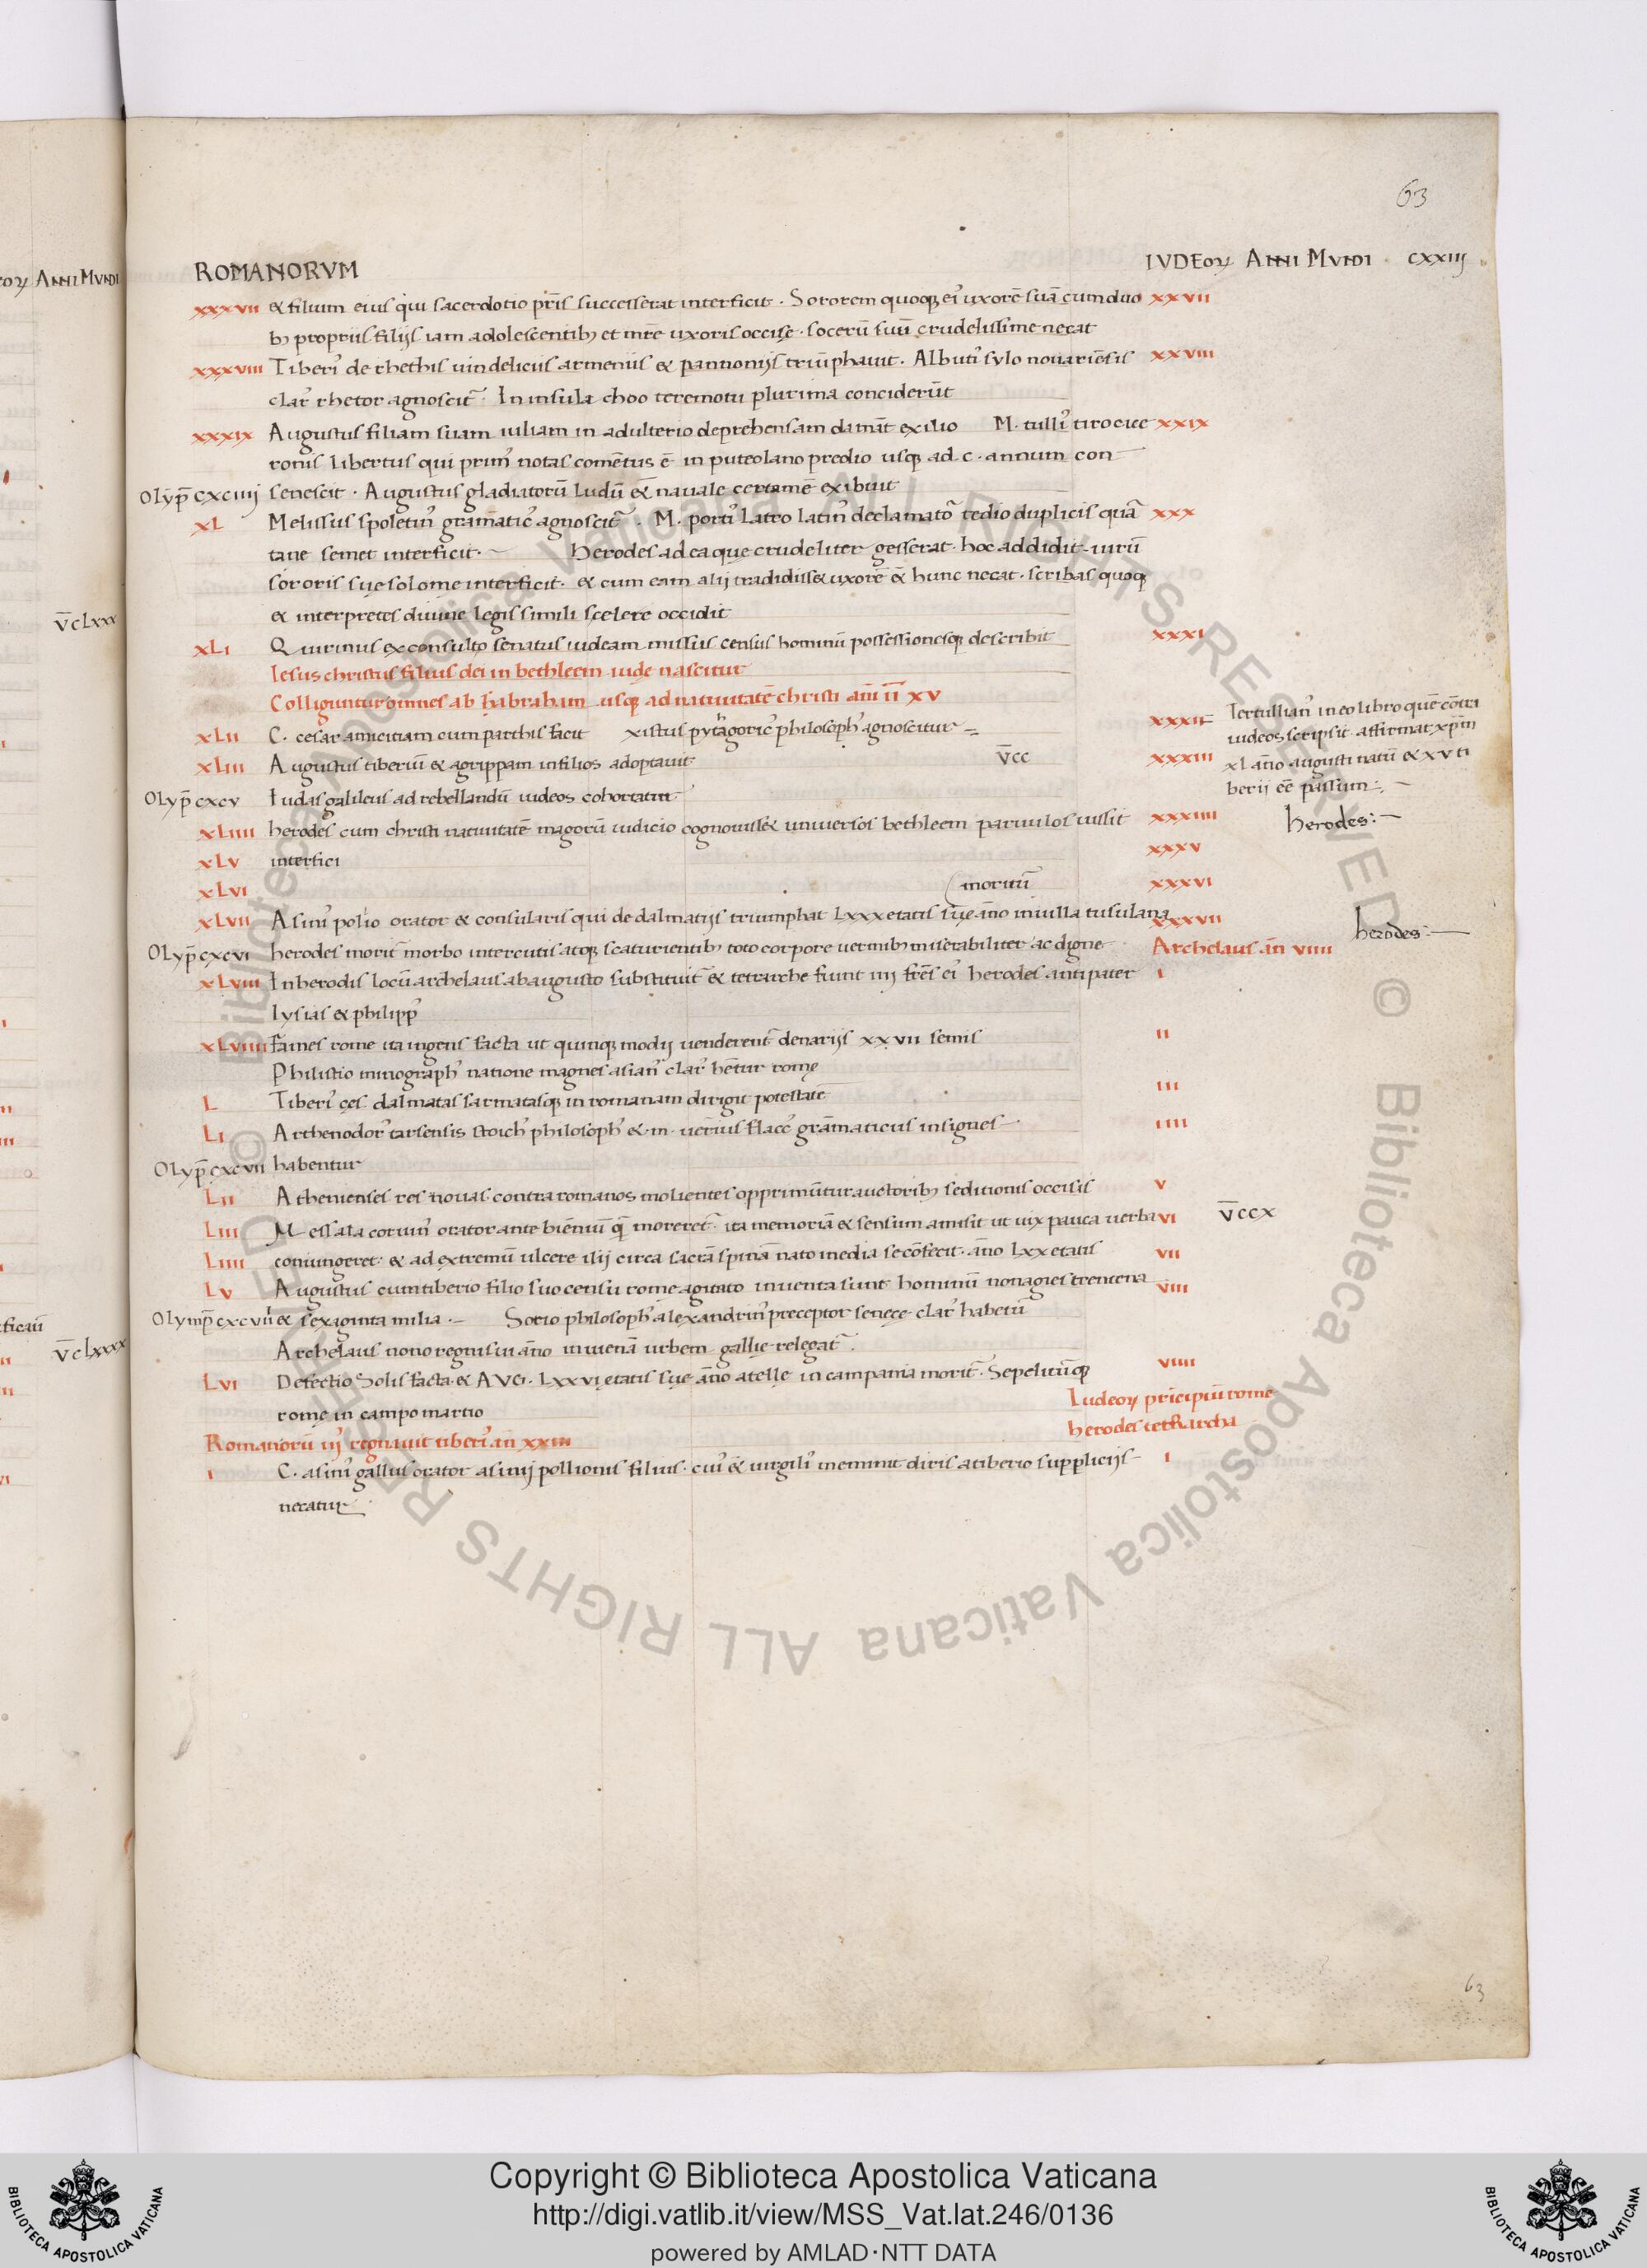 63
ROMANORVM IVDEoꝝ ANNI MVNDI CXXIIJ
xxxvii & filium eius qui sacerdotio pr̄is successerat interficit . Sororem quoqꝫ ei' uxorē suā cum duo xxvii
bꝫ propriis filijs iam adolescentibꝫ et mr̄e uxoris occisę . socerū suū crudelissime necat
xxxviii Tiberi' de rhethis uindelicis armeniis & pannonijs triūphauit . Albuti' sylo nouariēsis xxviii
clar' rhetor agnoscit̄ . In insula choo teremotu plurima conciderūt
xxxix Augustus filiam suam iuliam in adulterio deprehensam damāt exilio M. tulli' tiro cice xxix
ronis libertus qui prim' notas comētus ē in puteolano predio usqꝫ ad . c . annum con
Olyp̄ cxciiij senescit . Augustus gladiatorū ludū & nauale certamē exibuit
xL Melissus spoletin' gramatic' agnoscit̄ . M. porti' Latro latin' declamato᷑ tedio duplicis quā xxx
tane semet interficit . ~ herodes ad ea que crudeliter gesserat . hoc addidit . uirū
sororis suę solome interficit . & cum eam alij tradidiss& uxorē & hunc necat . scribas quoqꝫ
& interpretes diuine legis simili scelere occidit
xLi Quirinus ex consulto senatus iudeam missus census hominū possessionesqꝫ describit xxxi
Iesus christus filius dei in bethleem iudę nascitur
Colliguntur omnes ab habraham usqꝫ ad natiuitatē christi an̄i īī xv
xLii C. cesar amicitiam cum parthis facit xistus pytagoric' philosoph' agnoscitur xxxii
Tertullian' in eo libro quē cōtra
iudeos scripsit . affirmat xp̄m
xLiii Augustus tiberiū & agrippam in filios adoptauit v̄cc xxxiii xL an̄o augusti natū & xv ti
berij eē passum
Olyp̄ cxcv Iudas galileus ad rebellandū iudeos cohortatur
xLiiii herodes cum christi natiuitatē magorū iudicio cognouiss& uniuersos bethleem paruulos iussit xxxiiii herodes:~
xLv interfici xxxv
xLvi (morit̄ xxxvi
xLvii Asini' polio orator & consularis qui de dalmatijs triumphat Lxxx etatis suę an̄o in uilla tusulana xxxvii herodes:
Olyp̄ cxcvi herodes morit̄ morbo intercutis atqꝫ scaturientibꝫ toto corpore uermibꝫ miserabiliter ac digne Archelaus an̄ viiii
xLviii In herodis locū archelaus ab augusto substituit̄ & tetrarche fiunt iiij fr̄es ei' herodes antipater i
lysias & philipp'
xLviiii Fames rome ita ingens facta ut quinqꝫ modij uenderent̄ denarijs xxvii semis ii
Philistio mimograph' natione magnes asian' clar' hētur romę
L Tiberi' cęs dalmatas sarmatasqꝫ in romanam dirigit potestatē iii
Li Arthenodor' tarsensis stoich' philosoph' & m. uerius flacc' grāmaticus insignes iiii
Olyp̄ cxcvii habentur
Lii Athenienses res nouas contra romanos molientes opprimūtur auctoribꝫ seditionis occisis v
Liii Messala coruin' orator ante bieniū q̄ moreret̄ . ita memoriā & sensum amisit ut uix pauca uerba vi v̄ccx
Liiii coniungeret . & ad extremū ulcere isij circa sacrā spinā nato inedia se cōfecit . an̄o Lxx etatis vii
Lv Augustus cum tiberio filio suo censu rome agitato inuenta sunt hominū nonagies trentena viii
Olymp̄ cxcviii & sexaginta milia .~ Sotio philosoph' alexandrin' preceptor senece clar' habetū
Archelaus nono regni sui an̄o in uienā urbem gallię relegat̄ .
Lvi Defectio Solis facta . & AVG . Lxxvi etatis suę an̄o atellę in campania morit̄ . Sepelitūqꝫ viiii
Iudeoꝝ pricipiū rome
romę in campo martio
herodes tethrarcha
Romanorū iij' regnauit tiberi' an̄ xxiii
i C. asini' gallus orator asinij pollionis filius . cui' & uirgili' meminit diris a tiberio supplicijs i
necatur
63
eoꝝ ANNI MVNDI
v̄cLxxx
ficaū
v̄cLxxxx
© Biblioteca Apostolica Vaticana ALL RIGHTS RESERVED © Biblioteca Apostolica Vaticana ALL RIGHTS RESERVED
BIBLIOTECA APOSTOLICA VATICANA
Copyright © Biblioteca Apostolica Vaticana
http://digi.vatlib.it/view/MSS_Vat.lat.246/0136
powered by AMLAD·NTT DATA
BIBLIOTECA APOSTOLICA VATICANA